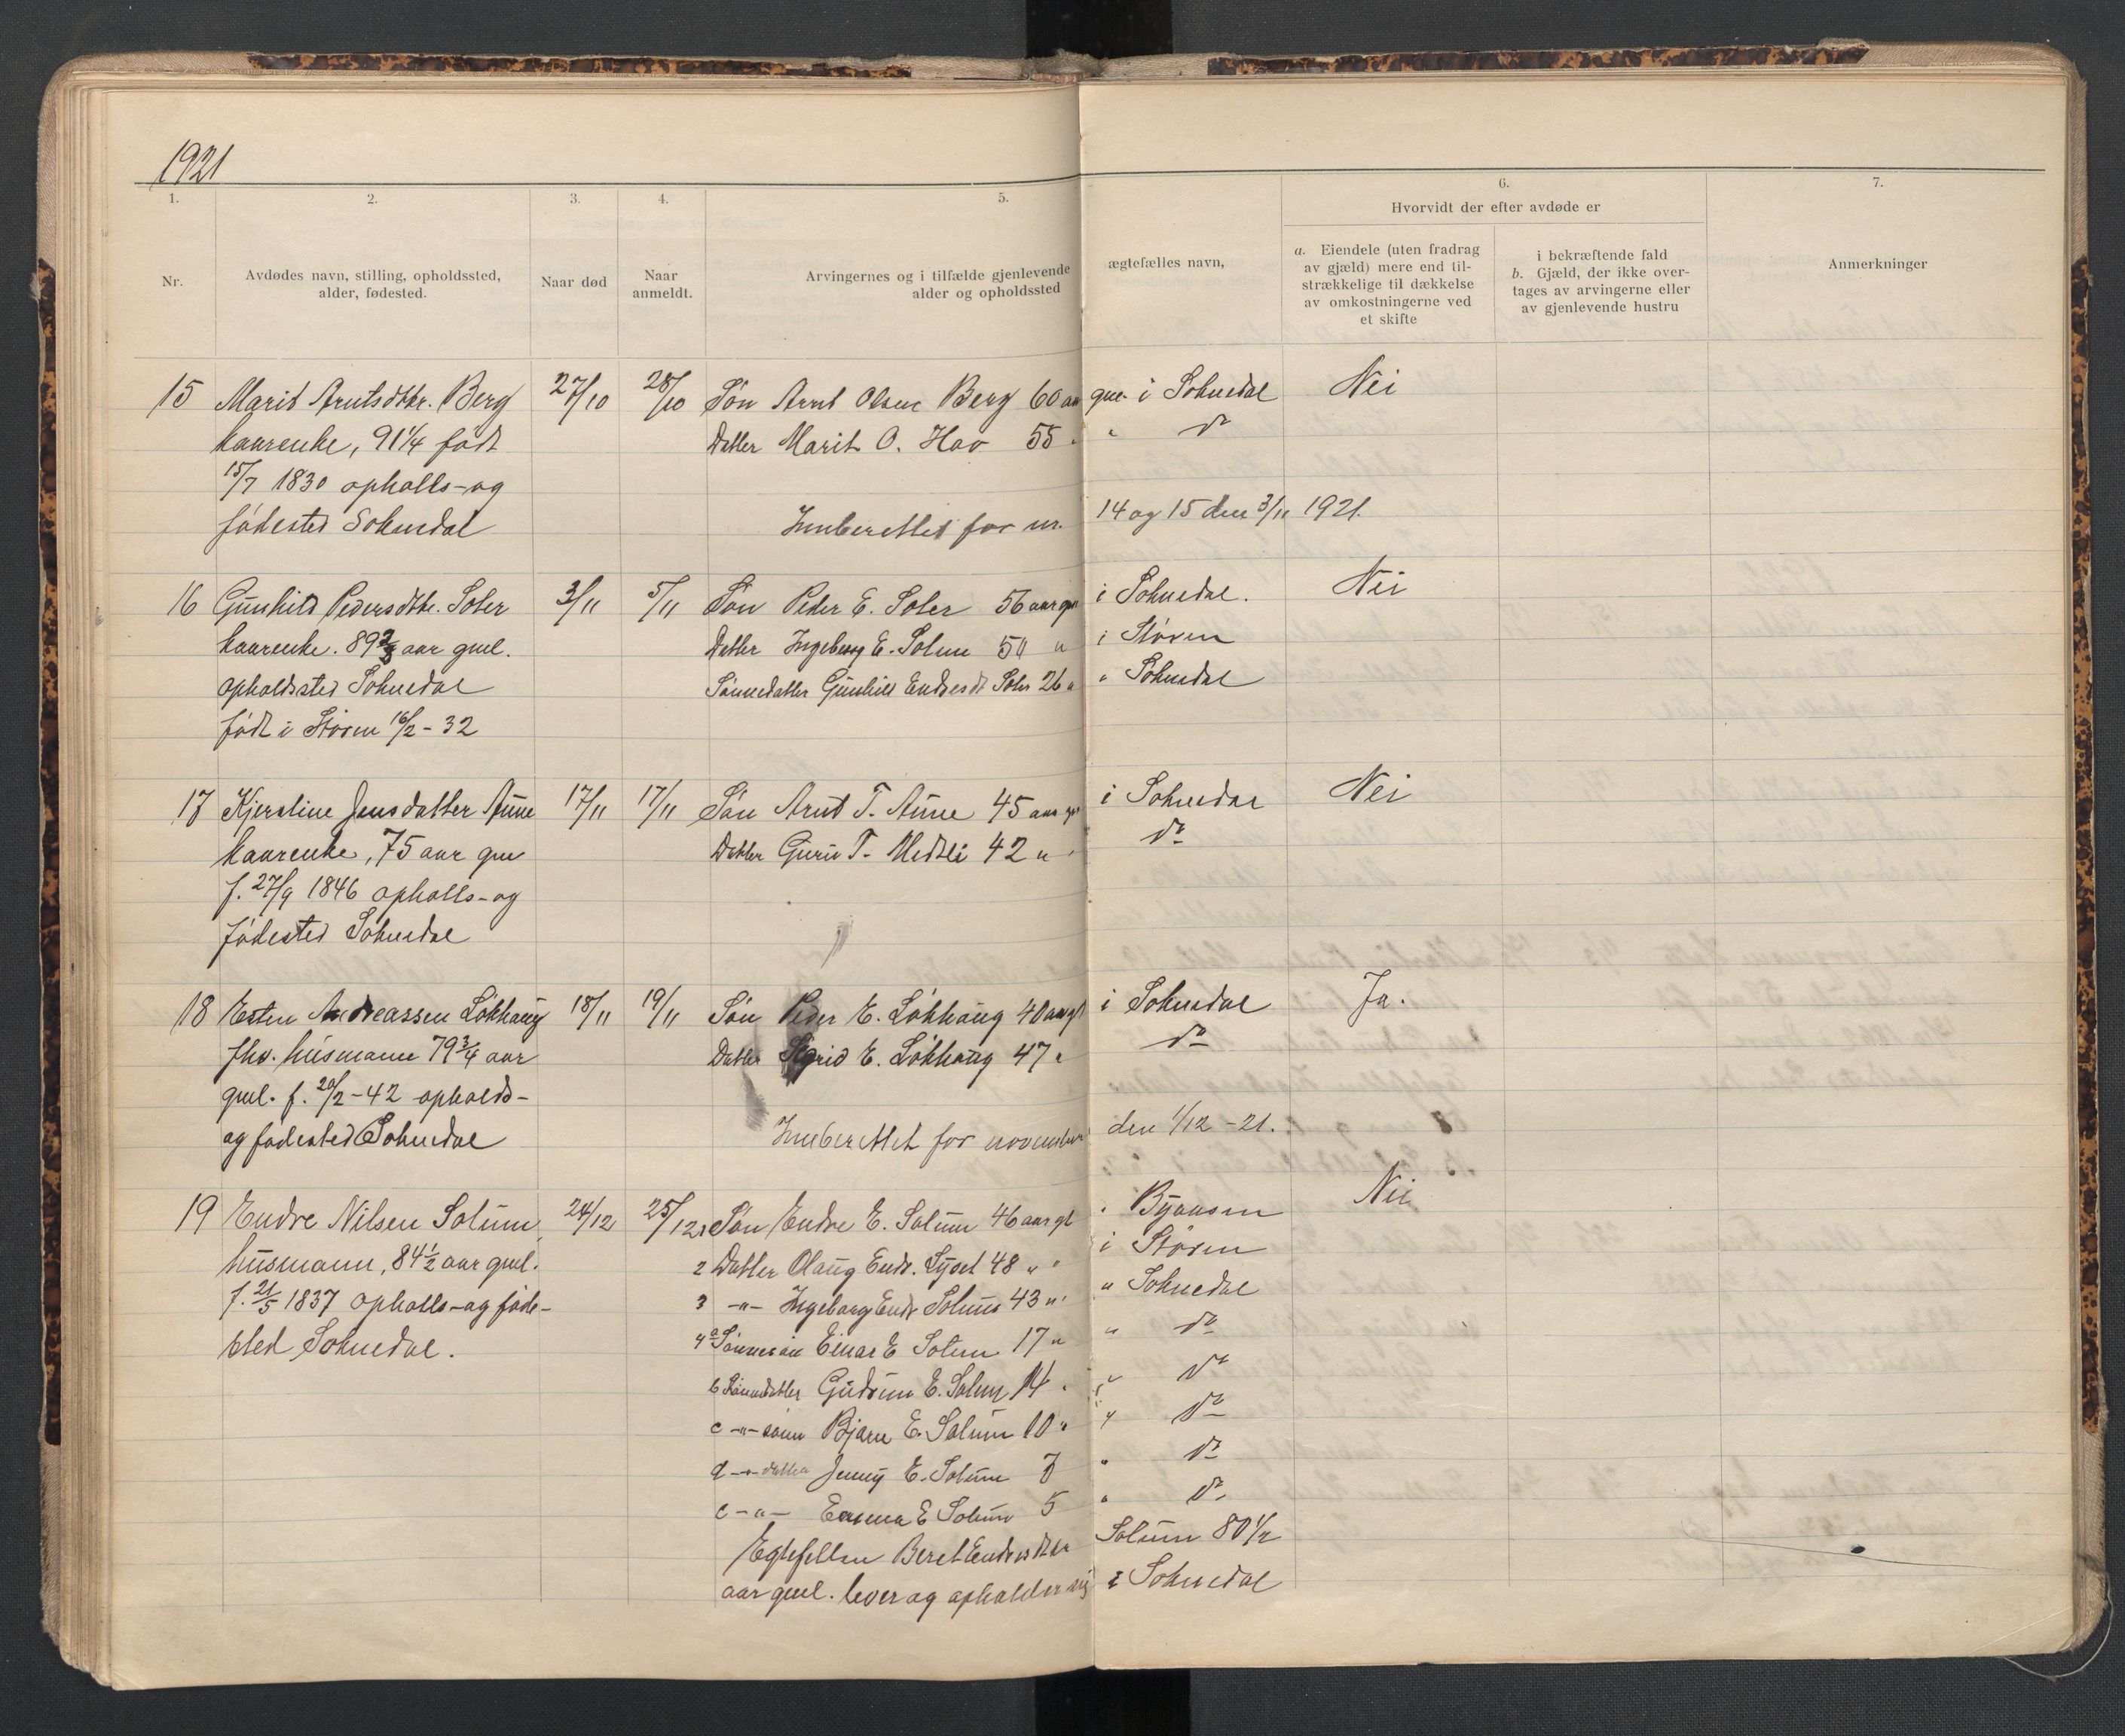 1921
1. 2. 3. 4. 5. 6. 7.
Hvorvidt der efter avdøde er
Nr.
Avdødes navn, stilling, opholdssted,
alder, fødested.
Naar død
Naar
anmeldt.
Arvingernes og i tilfælde gjenlevende ægtefælles navn,
alder og opholdssted
a. Eiendele (uten fradrag
av gjæld) mere end til-
strækkelige til dækkelse
av omkostningerne ved
et skifte
i bekræftende fald
b. Gjæld, der ikke over-
tages av arvingerne eller
av gjenlevende hustru
Anmerkninger
15 Marit Arntsdtr. Berg 27/10 28/10 Søn Arnt Olsen Berg 60 aar gml. i Soknedal Nei
kaarenke, 91 1/4 født Datter Marit O. Hov 55 " " do
15/7 1830 opholls-og
fødested Soknedal Innberettet for nr. 14 og 15 den 3/11 1921.
16 Gunhild Pedersdtr. Soler 3/11 5/11 Søn Peder E. Soler 56 aar gml i Soknedal. Nei
kaarenke. 89 2/3 aar gml. Datter Ingeborg E. Solem " i Støren
opholdsted Soknedal Sønnedatter Gunhild Endresdt Soler 26 " " Soknedal
født i Støren 16/2-32
17 Kjerstine Jensdatter Aune 17/11 17/11 Søn Arnt T. Aune 45 aar gml i Soknedal Nei
kaarenke, 75 aar gml Datter Guru T. 42 " do
f. 27/9 1846 opholls-og
fødested Soknedal
18 Esten Andreassen Løkhaug 18/11 19/11 Søn Peder E. Løkhaug 40 aar gl i Soknedal Ja.
fhv. husmann 79 3/4 aar Datter Sigrid E. Løkhaug 47 " do
gml. f. 20/2-42 opholds-
og fødested Soknedal Innberettet for november den 1/12-21.
19 Endre Nilsen Solum, 24/12 25/12 1 Søn Endre E. Solum 46 aar gl i Bynesen Nei
husmann, 84 1/2 aar gml. 2 Datter Olaug Endr. 48 " " i Støren
f. 21/5 1837 opholls-og føde- 3 -"- Ingeborg Endr Solum 43 " " " Soknedal
sted Soknedal. 4 a Sønnesøn Einar E Solum 17 " " do
b Sønnedatter Gudrun E. Solum 14 " " do
c -"- sønn Bjarne E. Solum 10 " " do
d -"- datter Jenny E. Solum 7 " do
e -"- Emma E Solum 5 " do
Egtefellen Beret Endresdtr Solum 80 1/2
aar gml. lever og opholder sig i Soknedal